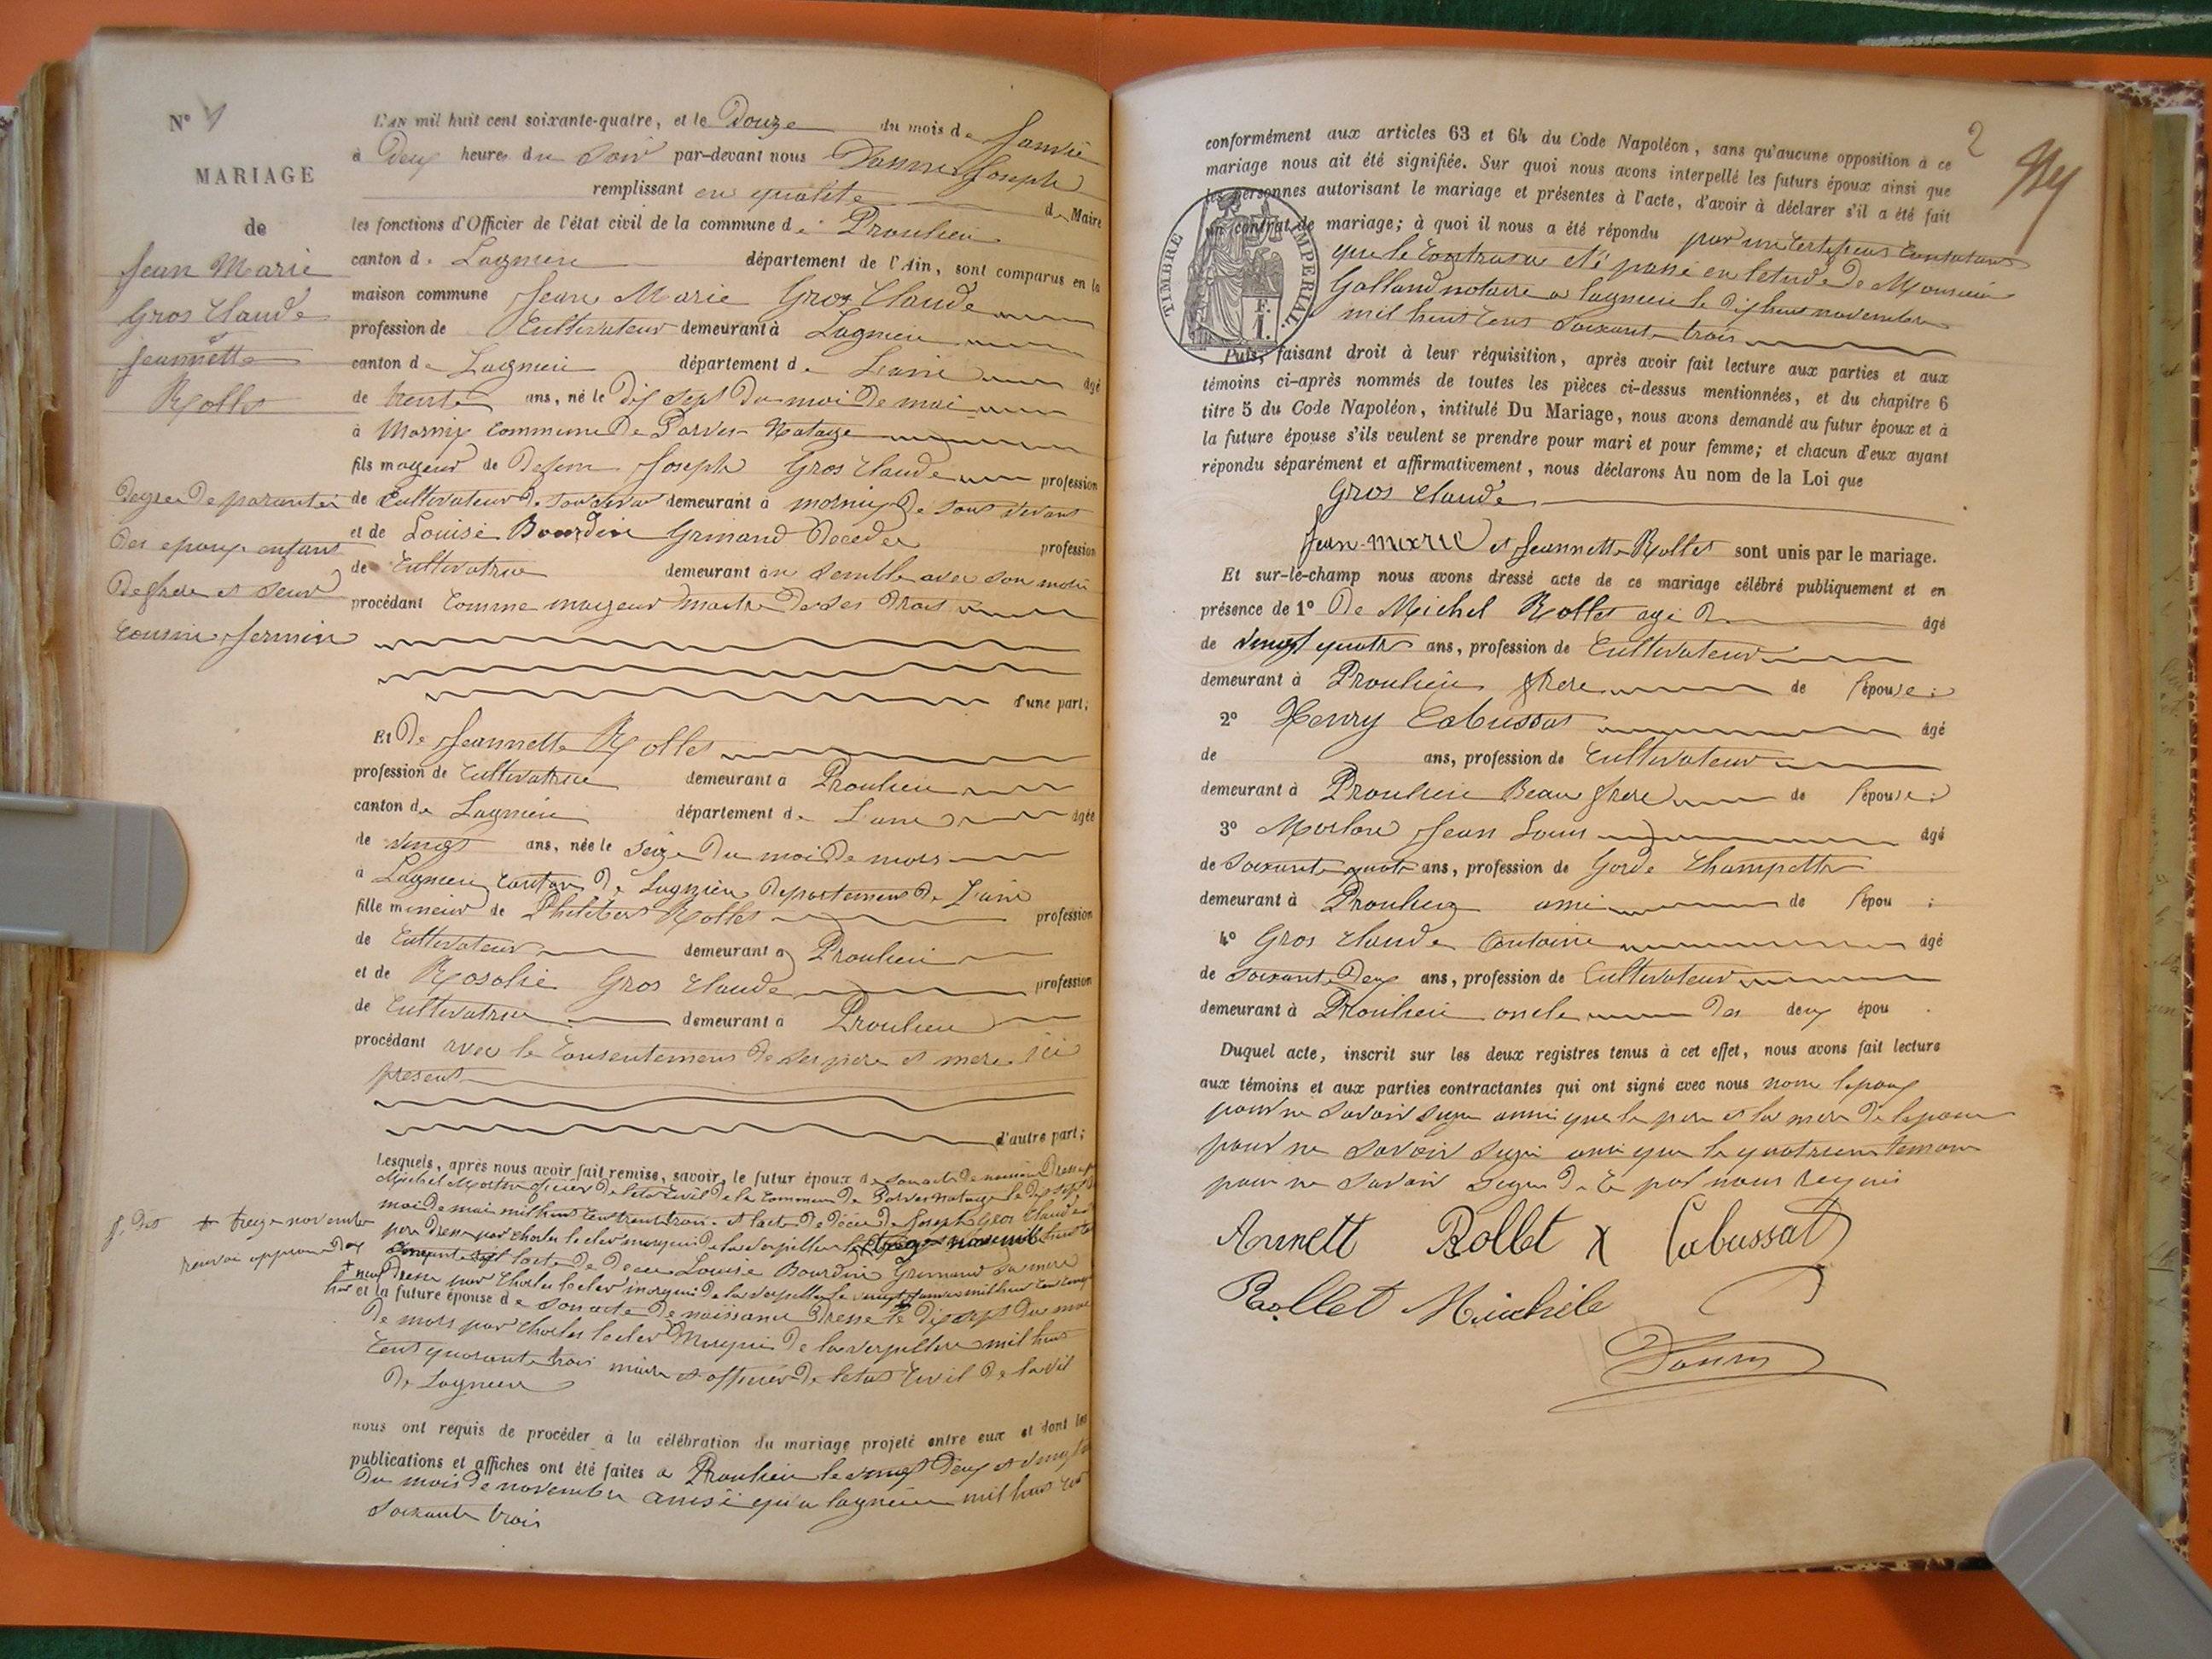 N° 1
MARIAGE
de
Jean Marie
Gros Claude
et
Jeannette
Rollet
degree de paranter
des epoux enfant
de frere et seur
cousin germin
L'AN mil huit cent soixante-quatre, et le Douze du mois de Janvié
à Deux heures du soir par-devant nous Joseph
remplissant en qualité de Maire
les fonctions d'Officier de l'état civil de la commune de Proulieu
canton de Lagnieu département de l'Ain, sont comparus en la
maison commune Jean Marie Gros Claude
profession de Cultivateur demeurant à Lagnieu
canton de Lagnieu département de L'ain âgé
de trente ans, né le dix sept du moi de mai
à commune de Parves Natage
fils mageur de defun Joseph Gros Claude profession
de Cultivateur de son vivan demeurant à de sont vivant
et de Louise Bourdin Grimand décédée profession
de Cultivatrice demeurant en semble avec son mari
procédant comme mageur maitre de ses droit
d'une part;
Et de Jeannette Rollet
profession de Cultivatrice demeurant à Proulieu
canton de Lagnieu département de L'ain âgée
de vingt ans, née le seize du moi de mars
à Lagnieu Canton de Lagnieu departement de L'ain
fille mineur de Philibert Rollet profession
de Cultivateur demeurant à Proulieu
et de Rosalie Gros Claude profession
de Cultivatrice demeurant à Proulieu
procédant avec le consentement de ses pere et mere ici
present
d'autre part;
Lesquels, après nous avoir fait remise, savoir, le futur époux de son acte de
Michel officier de l'état civil de la commune de Parves Natage le dix sept
moi de mai mil huit cent trente trois et l'acte de décé de Joseph Gros Claude
pere dresse par Charles lecler marquis de laverpillier le treize novembre
+ treize novembre
renvoi approuve
l'acte de dece Louise Bourdin Grimand sa mere
dresse par Charles lecler marquis de laverpillier le
et la future épouse de son acte de naissance dresse le dix sept du moi
de mars par Charles lecler Marquis de laverpilliere mil huit
Cent quarante trois maire et officier de letat Civil de la vil
de Lagnieu
nous ont requis de procéder à la célébration du mariage projeté entre eux et dont les
publications et affiches ont été faites a Proulieu le vingt deux et vingt
du mois de novembre ansi qu'a lagnieu mil huit cent
soixante trois
2
conformément aux articles 63 et 64 du Code Napoléon, sans qu'aucune opposition à ce
mariage nous ait été signifiée. Sur quoi nous avons interpellé les futurs époux ainsi que
les personnes autorisant le mariage et présentes à l'acte, d'avoir à déclarer s'il a été fait
un contrat de mariage; à quoi il nous a été répondu par un certificat
que le Contrat a eté passé en letude de Monsieur
Galland notaire a lagnieu le dix huit novembre
mil huit cent soixante trois
TIMBRE IMPERIAL.
F.
1.
Puis, faisant droit à leur réquisition, après avoir fait lecture aux parties et aux
témoins ci-après nommés de toutes les pièces ci-dessus mentionnées, et du chapitre 6
titre 5 du Code Napoléon, intitulé Du Mariage, nous avons demandé au futur époux et à
la future épouse s'ils veulent se prendre pour mari et pour femme; et chacun d'eux ayant
répondu séparément et affirmativement, nous déclarons Au nom de la Loi que
Gros Claude
Jean-marie et Jeannette Rollet sont unis par le mariage.
Et sur-le-champ nous avons dressé acte de ce mariage célébré publiquement et en
présence de 1° De Michel Rollet agé d âgé
de vingt quatre ans, profession de Cultivateur
demeurant à Proulieu frere de l'épouse;
2° Henry Cabussat âgé
de ans, profession de Cultivateur
demeurant à Proulieu Beau frere de l'épouse;
3° Jean Louis âgé
de soixante quatre ans, profession de Garde Champetre
demeurant à Proulieu ami de l'épou ;
4° Gros Claude Antoine âgé
de soixante Deux ans, profession de Cultivateur
demeurant à Proulieu oncle des deux épou .
Duquel acte, inscrit sur les deux registres tenus à cet effet, nous avons fait lecture
aux témoins et aux parties contractantes qui ont signé avec nous non lepoux
pour ne savoir signe ansi que le pere et la mere de lepouse
pour ne savoir signé ansi que le quatrieme temoin
pour ne savoir signe de ce par nous requis
Annett Rollet x Cabussat
Rollet Michele